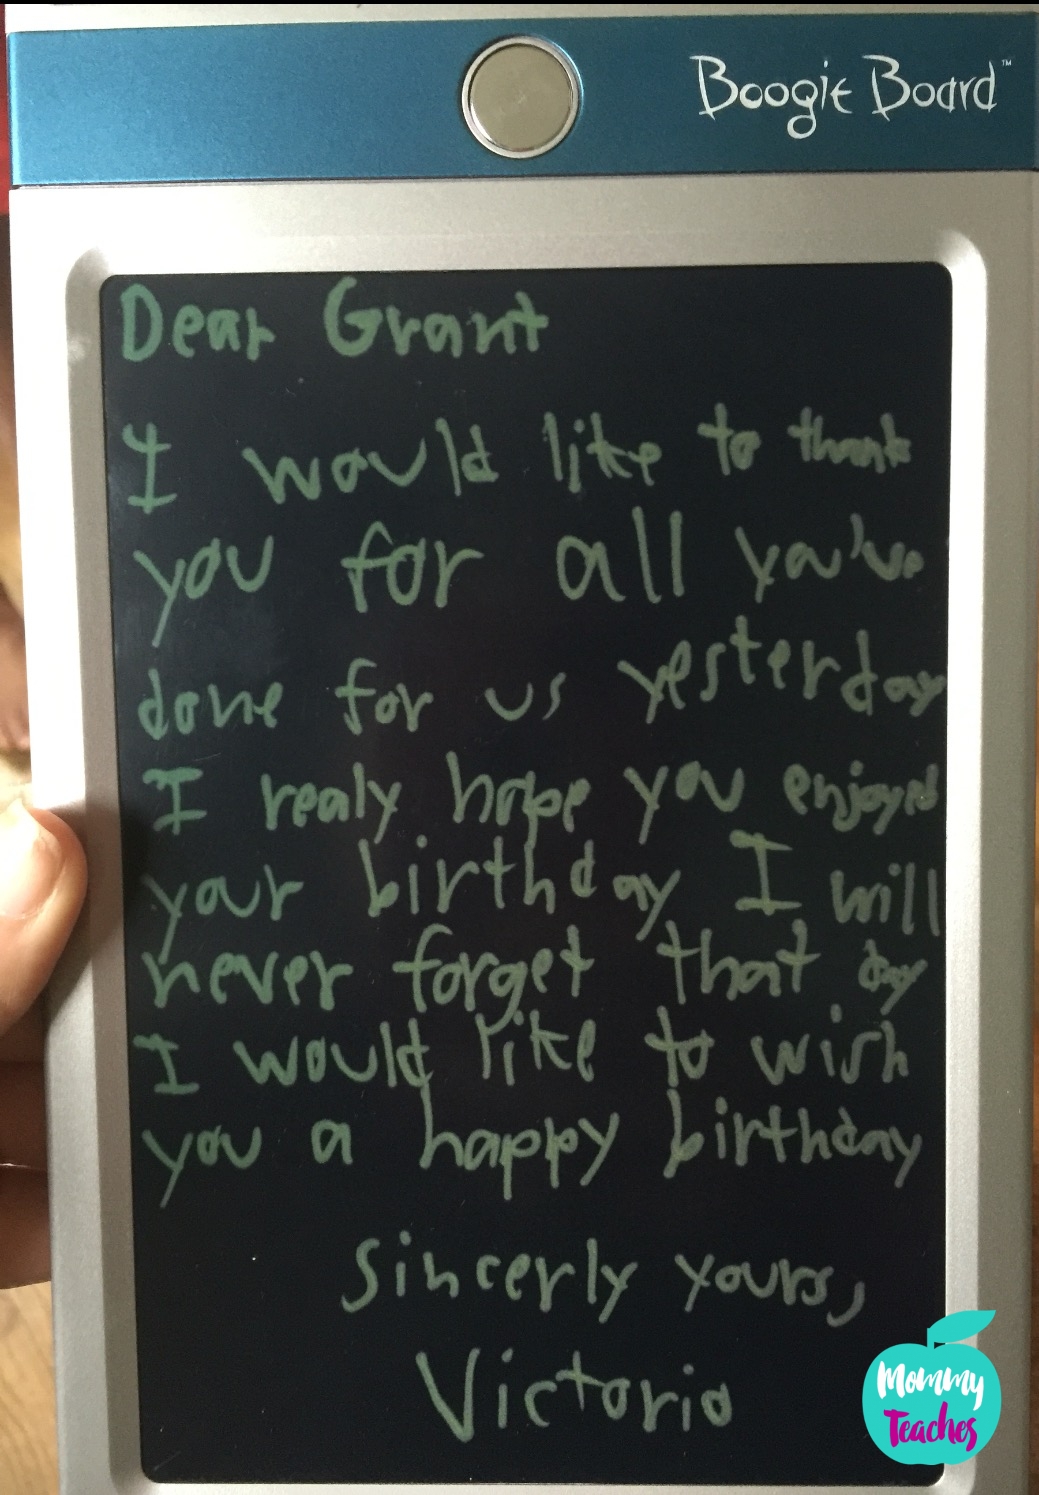 Boogie Board™
Dear Grant
I would like to thank
you for all you've
done for us yesterday
I realy hope you enjoyed
your birthday I will
never forget that day
I would like to wish
you a happy birthday
Sincerly yours,
Victoria
Mommy
Teaches